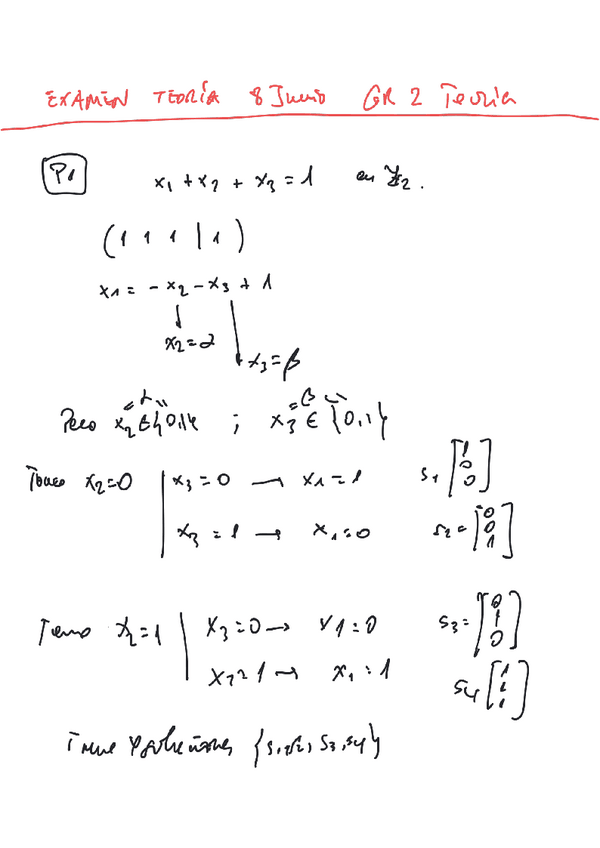 EXAMEN TEORÍA 8 Junio GR 2 Teoría
P1 x₁ + x₂ + x₃ = 1 en ℤ₂.
(1 1 1 | 1)
x₁ = - x₂ - x₃ + 1
x₂ = α
x₃ = β
"α" "= β"
Pero x₂ ∈ {0,1} ; x₃ ∈ {0,1}
Tomo x₂=0 | x₃ = 0 → x₁ = 1 s₁ [1 0 0]
x₃ = 1 → x₁ = 0 s₂ = [0 0 1]
Tomo x₂ = 1 | x₃ = 0 → x₁ = 0 s₃ = [0 1 0]
x₃ = 1 → x₁ = 1 s₄ [1 1 1]
Tiene 4 soluciones {s₁, s₂, s₃, s₄}